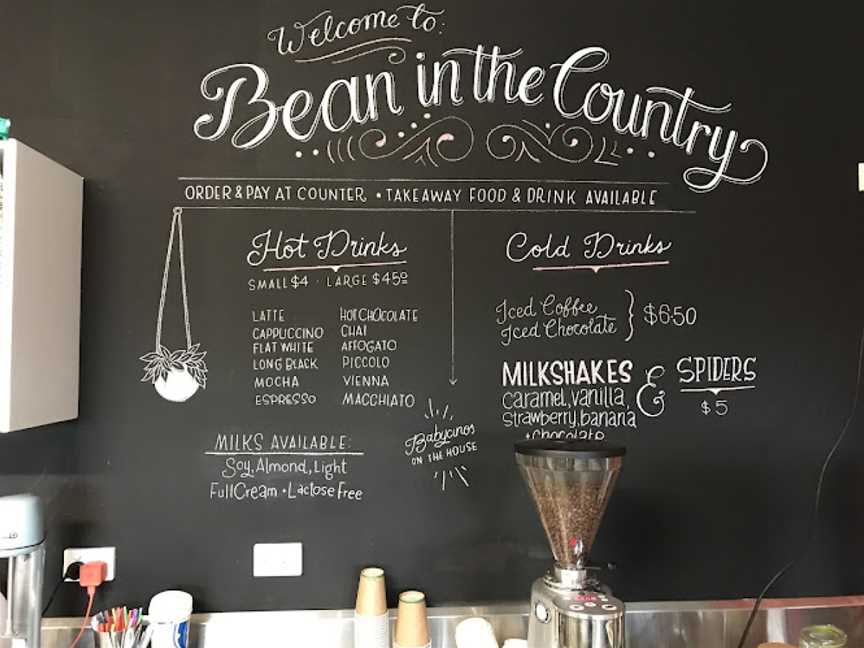 Welcome to:
Bean in the Country
ORDER & PAY AT COUNTER • TAKEAWAY FOOD & DRINK AVAILABLE
Hot Drinks
SMALL $4 · LARGE $4.50
LATTE
CAPPUCCINO
FLAT WHITE
LONG BLACK
MOCHA
ESPRESSO
HOT CHOCOLATE
CHAI
AFFOGATO
PICCOLO
VIENNA
MACCHIATO
MILKS AVAILABLE:
Soy, Almond, Light
Full Cream • Lactose Free
Babycinos
ON THE HOUSE
Cold Drinks
Iced Coffee
Iced Chocolate } $6.50
MILKSHAKES
caramel, vanilla,
strawberry, banana
+ chocolate
&
SPIDERS
$5